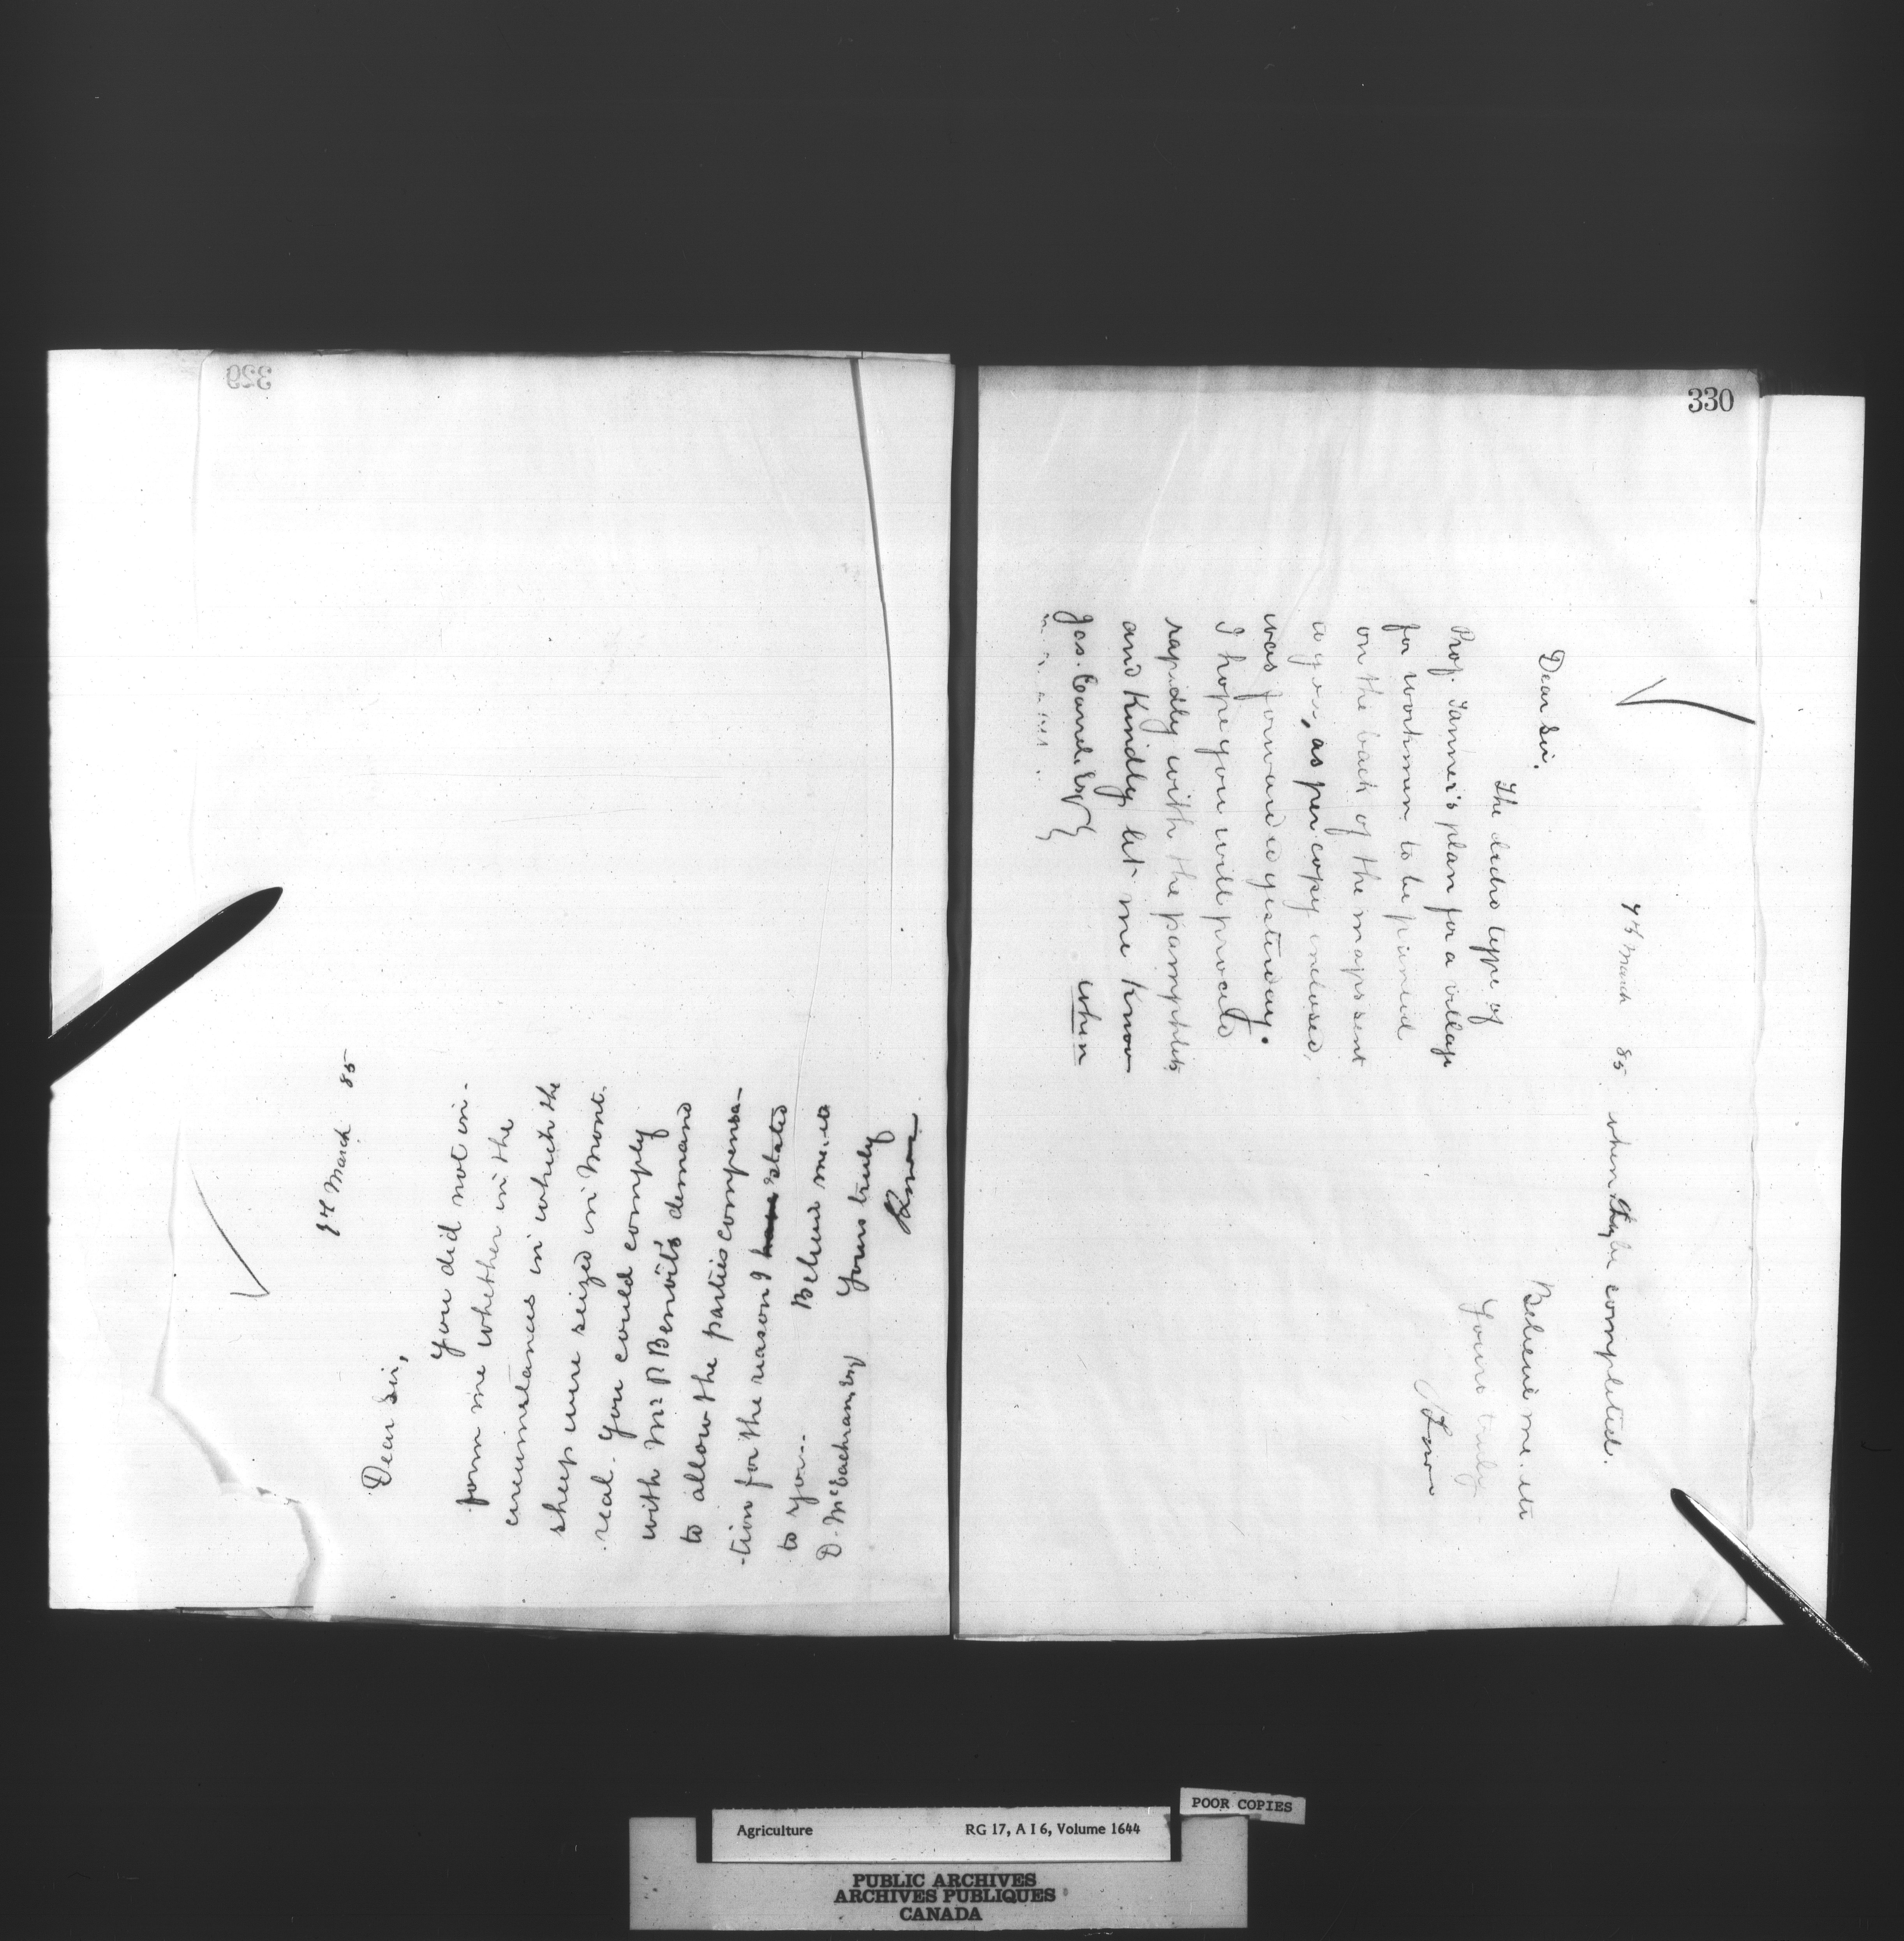 329
7th March 85
Dear Sir,
You did not in-
form me whether in the
circumstances in which the
sheep were seized in Mont.
real. You could comply
with Mr. P Benoit's demand
to allow the parties compensa-
-tion for the reason I have stated
to you. Believe me. etc
D. McEachran, Esq Yours truly
330
7th March 85
Dear Sir,
The electro type of
Prof. Tanner's plan for a village
for workmen to be printed
on the back of the maps sent
as per copy inclosed,
was forwarded yesterday.
I hope you will proceed
rapidly with the pamphlets
and Kindly let me Know
Jas. Carrel. Esq when
when they be completed.
Believe me. etc
Yours truly
Agriculture RG 17, A I 6, Volume 1644
POOR COPIES
PUBLIC ARCHIVES
ARCHIVES PUBLIQUES
CANADA